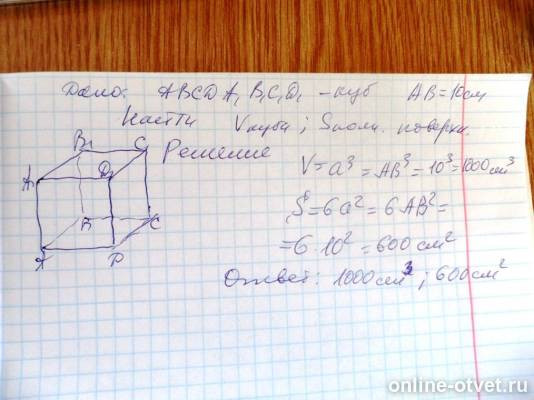 Дано: ABCDA₁B₁C₁D₁ - куб AB = 10см
Найти Vкуба ; Sполн. поверхн.
Решение
V = a³ = AB³ = 10³ = 1000 см³
S = 6a² = 6AB² =
= 6·10² = 600 см²
Ответ: 1000 см³ ; 600 см²
B₁ C₁
A₁ D₁
B C
A D
online-otvet.ru